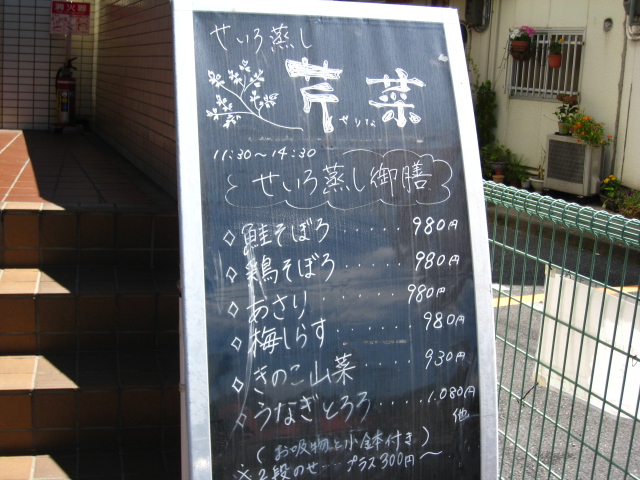 消火器
せいろ蒸し
芹菜
せりな
11:30～14:30
せいろ蒸し御膳
◇鮭そぼろ・・・・・980円
◇鶏そぼろ・・・・・980円
◇あさり・・・・・・980円
◇梅しらす・・・・・・980円
◇きのこ山菜・・・・930円
◇うなぎとろろ・・・・1.080円
他
(お吸物と小鉢付き)
※2段のせ…プラス300円～